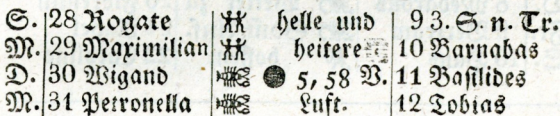 S. 28 Rogate helle und 9 3. S. n. Tr.
M. 29 Maximilian heitere 10 Barnabas
D. 30 Wigand 5, 58 V. 11 Basilides
M. 31 Petronella Luft. 12 Tobias